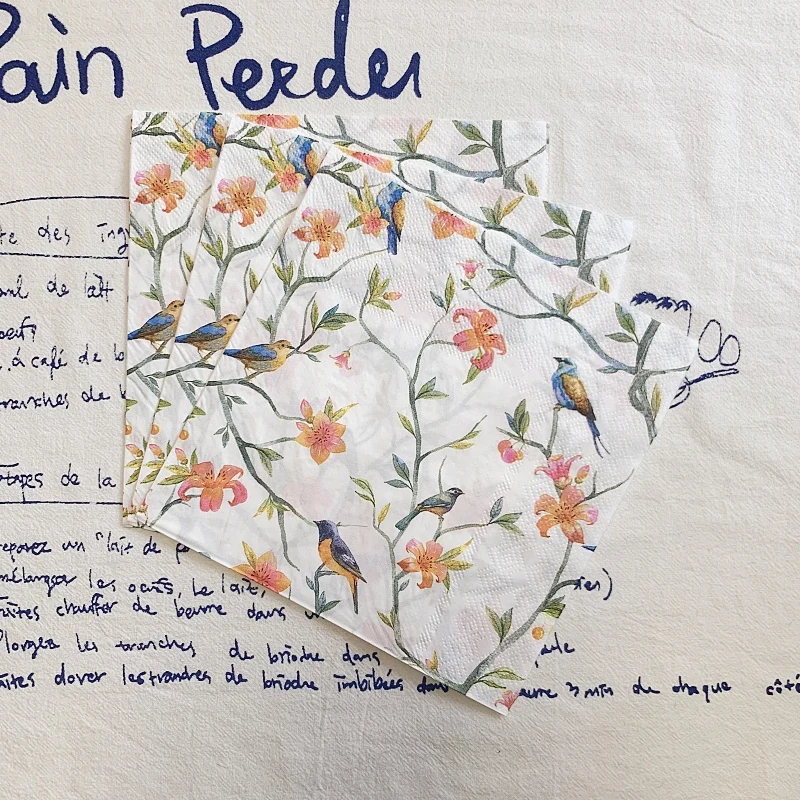 Pain Perdu
te des ing
de lait
oeufs
à café de b
tranches de
tapes de la
reparez un "lait de p
mélanger les oeufs, le lait,
faites chauffer de beurre dans
Plongez les tranches de brioche dans
aites dorer les tranches de brioche imbibées dans eurre 3 min de chaque côté